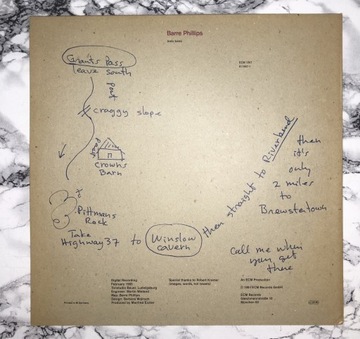 Barre Phillips
Grants Pass
leave south
craggy slope
Crowns
Barn
Pittmans
Rock
Take
Highway 37
to
Winslow
cavern
then straight to Riverbend
then
it's
only
2 miles
to
Brewstertown
Call me when
you get
there
Digital Recording
February 1983
Engineer: Martin Wieland
Produced by Manfred Eicher
Special thanks to Richard Kramer
An ECM Production
ECM Records